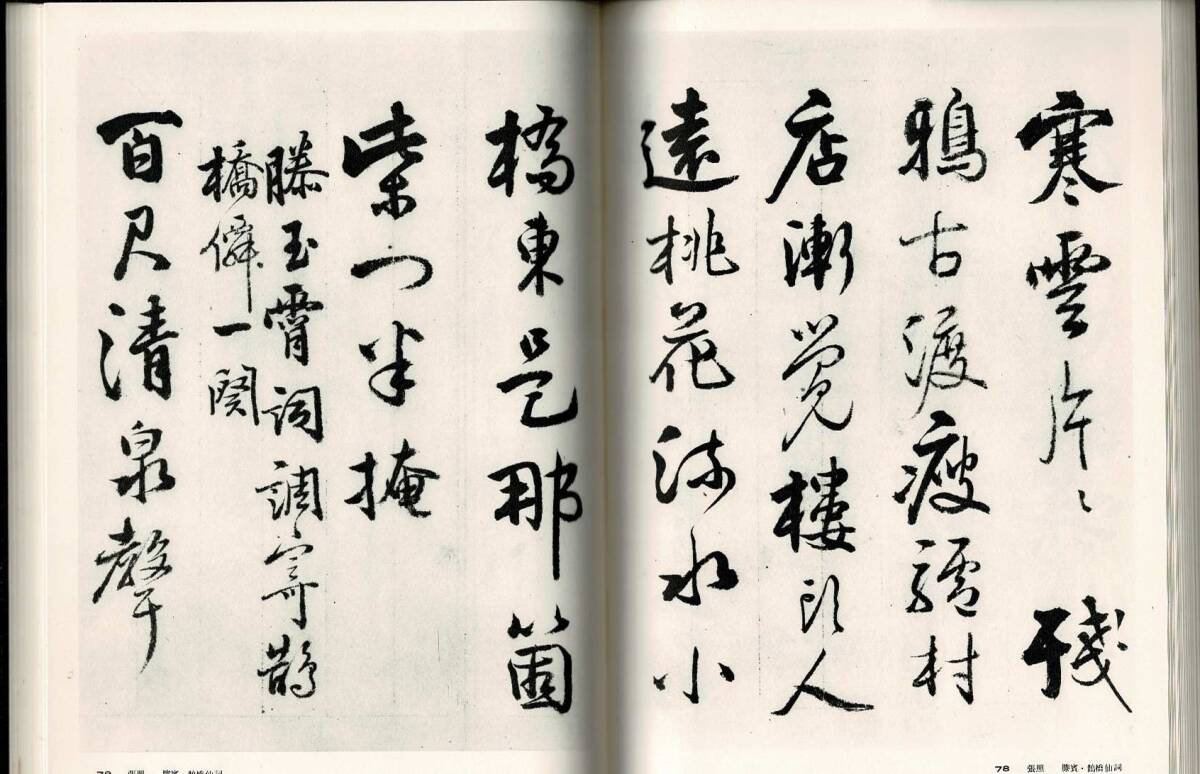 寒雲片〻殘
鴉古渡瘦驢村
店漸覺樓頭人
遠桃花流水小
橋東是那箇
柴門半掩
滕玉霄詞調寄鵲
橋僊一闋
百尺清泉聲
78 張照 滕賓・鵲橋仙詞
79 張照 滕賓・鵲橋仙詞